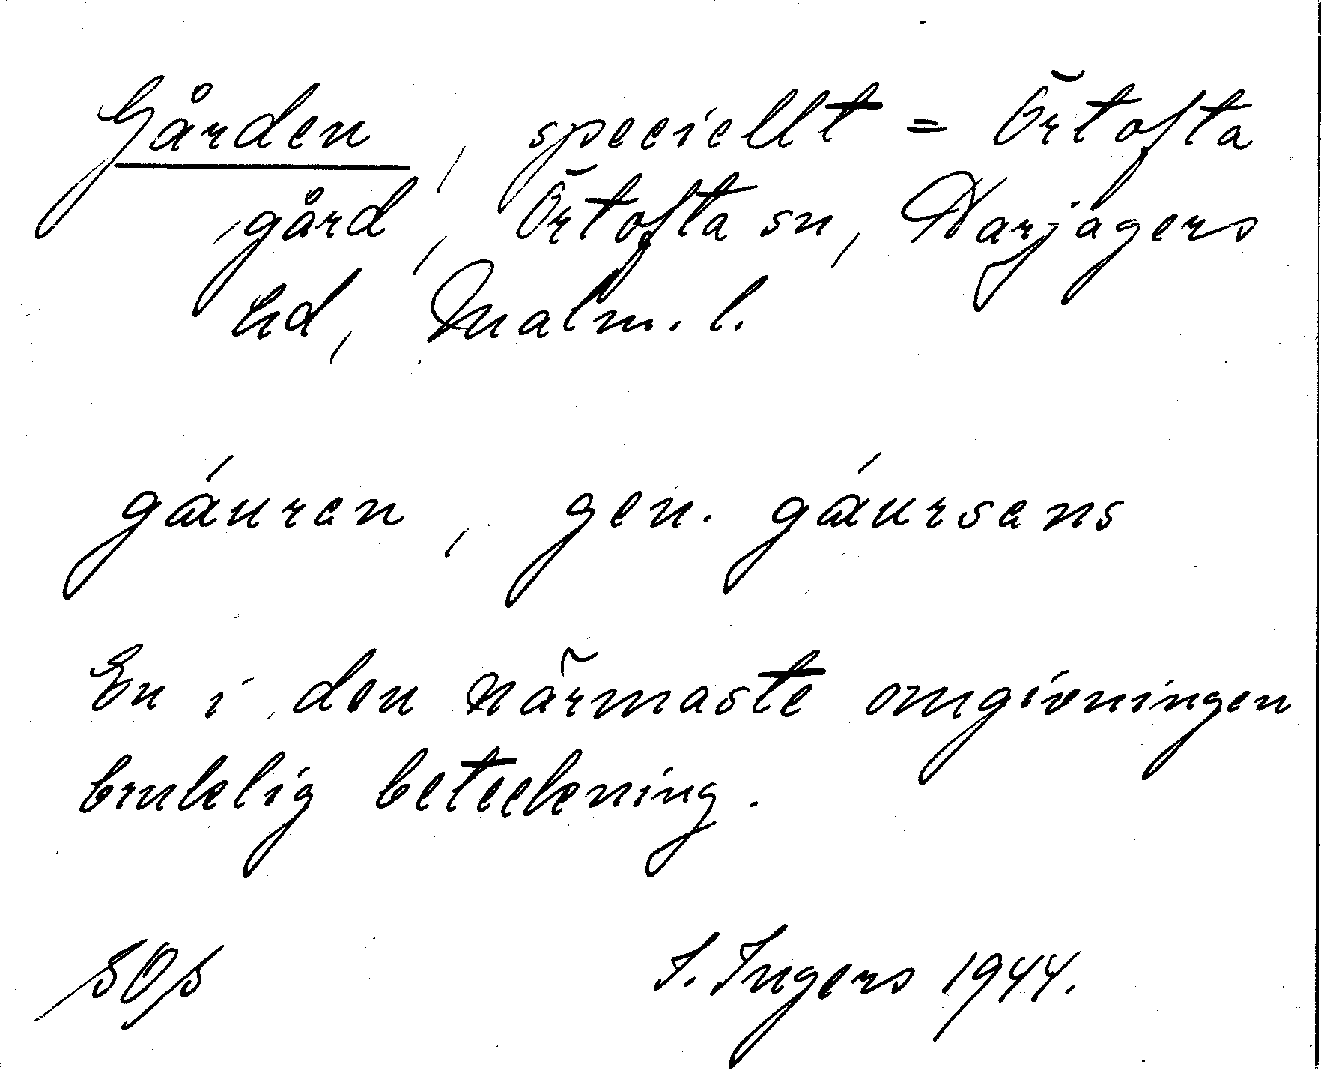 Gården, speciellt = Örtofta
gård, Örtofta sn, Harjagers
hd, Malm. l.
gáuren, gen. gáursens
En i den närmaste omgivningen
bruklig beteckning.
I. Ingers 1944.